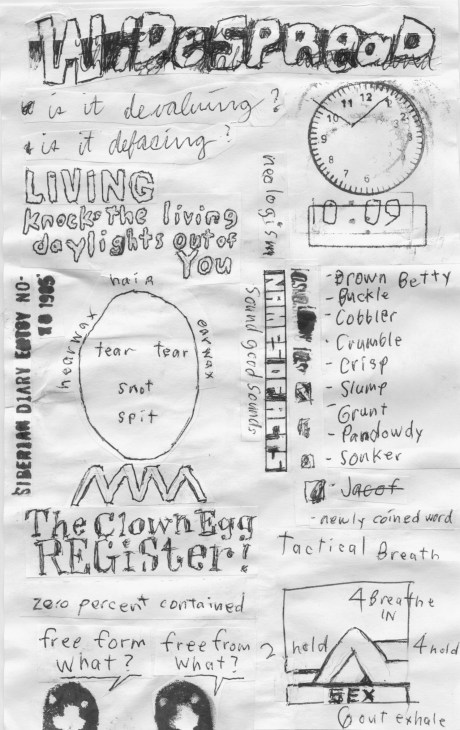 WIDESPREAD
is it devaluing?
is it defasing?
LIVING
knocks the living
daylights out of
You
neologism
11 12 1
10
9
8
7 6
0 09
SIBERIAN DIARY ENTRY NO.
78 1985
hair
hearwax
earwax
tear tear
snot
spit
Sound good sounds
- Brown Betty
- Buckle
- Cobbler
- Crumble
- Crisp
- Slump
- Grunt
- Pandowdy
- Sonker
- newly coined word
The Clown Egg
REGISTER!
Tactical Breath
zero percent contained
free form
what?
free from
what?
4 Breathe
IN
2
hold
4 hold
SEX
6 out exhale